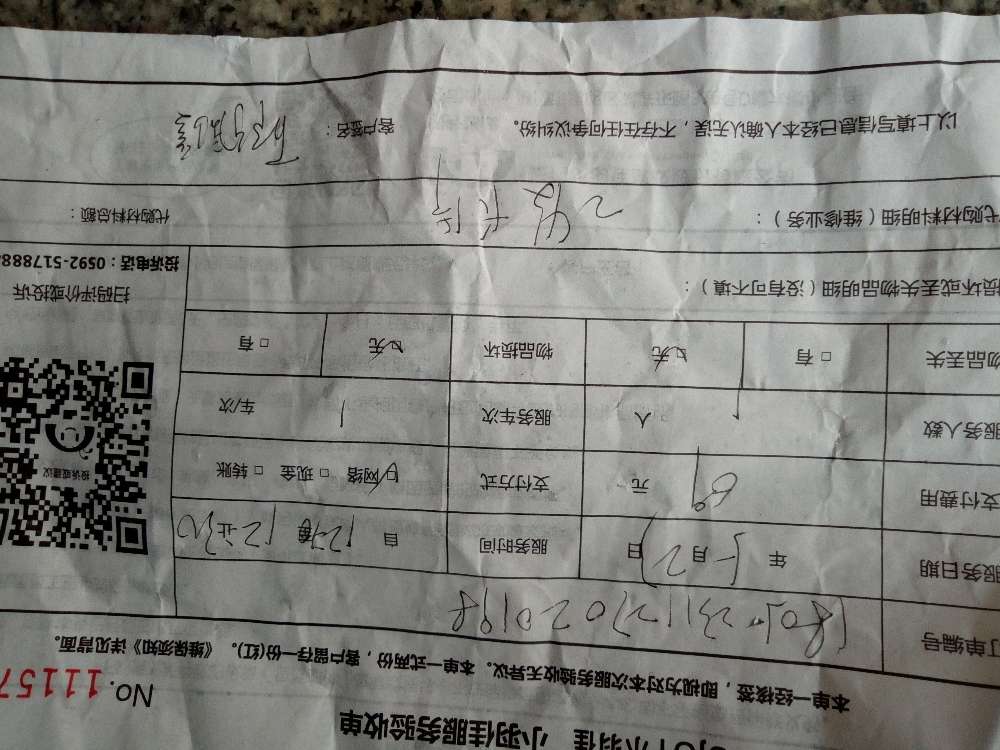 小羽佳 小羽佳服务验收单
No. 11157
本单一经核签，即视为对本次服务验收无异议。本单一式两份，客户留存一份(红)。《维保须知》详见背面。
订单编号
服务日期 年 5月23日 服务时间 自 12 12:30
支付费用 69元 支付方式 ☑网络 □现金 □转账
服务人数 1 人 服务车次 1 车/次
物品丢失 □有 ☑无 物品损坏 ☑无 □有
投诉或建议
扫码评价或投诉
投诉电话：0592-517888
损坏或丢失物品明细（没有可不填）：
代购材料明细（维修业务）： 代购材料总额：
以上填写信息已经本人确认无误，不存在任何争议纠纷。 客户签名：